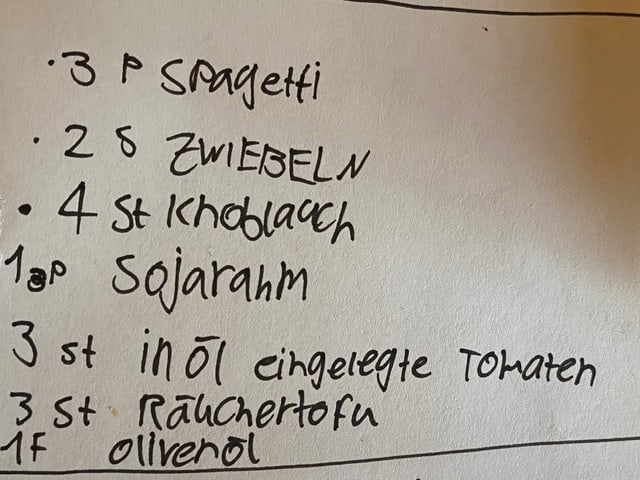 · 3 P Spagetti
· 2 S ZWIEBELN
· 4 St Knoblauch
1 P Sojarahm
3 st in Öl eingelegte Tomaten
3 St Räuchertofu
1F Olivenöl